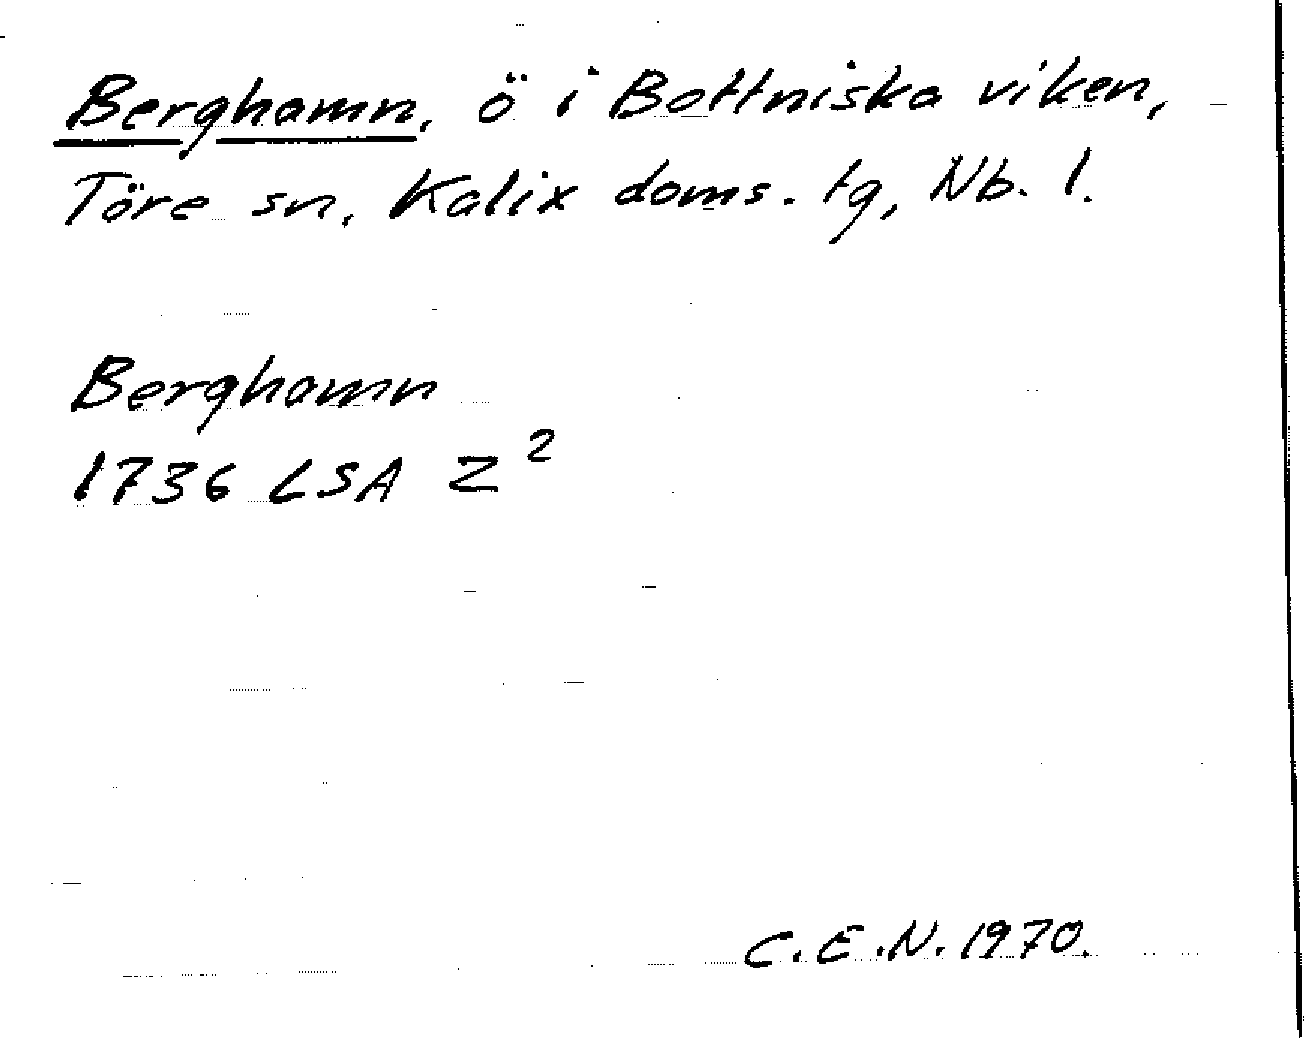 Berghamn, ö i Bottniska viken,
Töre sn, Kalix doms. tg, Nb. l.
Berghamn
1736 LSA Z²
C.E.N. 1970.